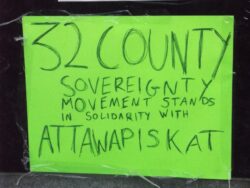 32 COUNTY
SOVEREIGNTY
MOVEMENT STANDS
IN SOLIDARITY WITH
ATTAWAPISKAT